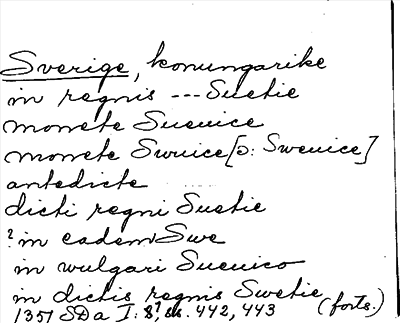 Sverige, konungarike
in regnis --- Suetie
monete Sueuice
monete Swuice [ɔ: Sweuice]
antedicte
dicti regni Suetie
? in eadem Swe
in wulgari Sueuico
in dictis regnis Swetie
1351 SDa I: s. 442, 443 (forts.)